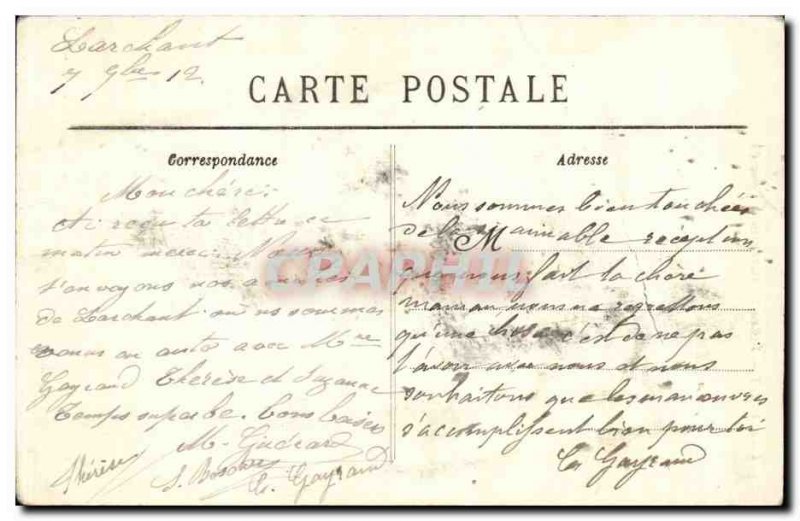 Larchant
7 9bre 12
CARTE POSTALE
Correspondance
Mon chéri
Ai reçu ta lettre ce
matin merci. Nous
t'envoyons nos amitiés
de Larchant où nous sommes
venus en auto avec Mme
Gayraud Thérèse et Suzanne
Temps superbe. Bons baisers
M. Guérard
Thérèse
S.
G. Gayraud
Adresse
Nous sommes bien touchées
de la M aimable réception
que nous fait ta chère
maman nous ne regrettons
qu'une chose c'est de ne pas
t'avoir avec nous et nous
souhaitons que les manœuvres
s'accomplissent bien pour toi
G. Gayraud
CPAPHIL